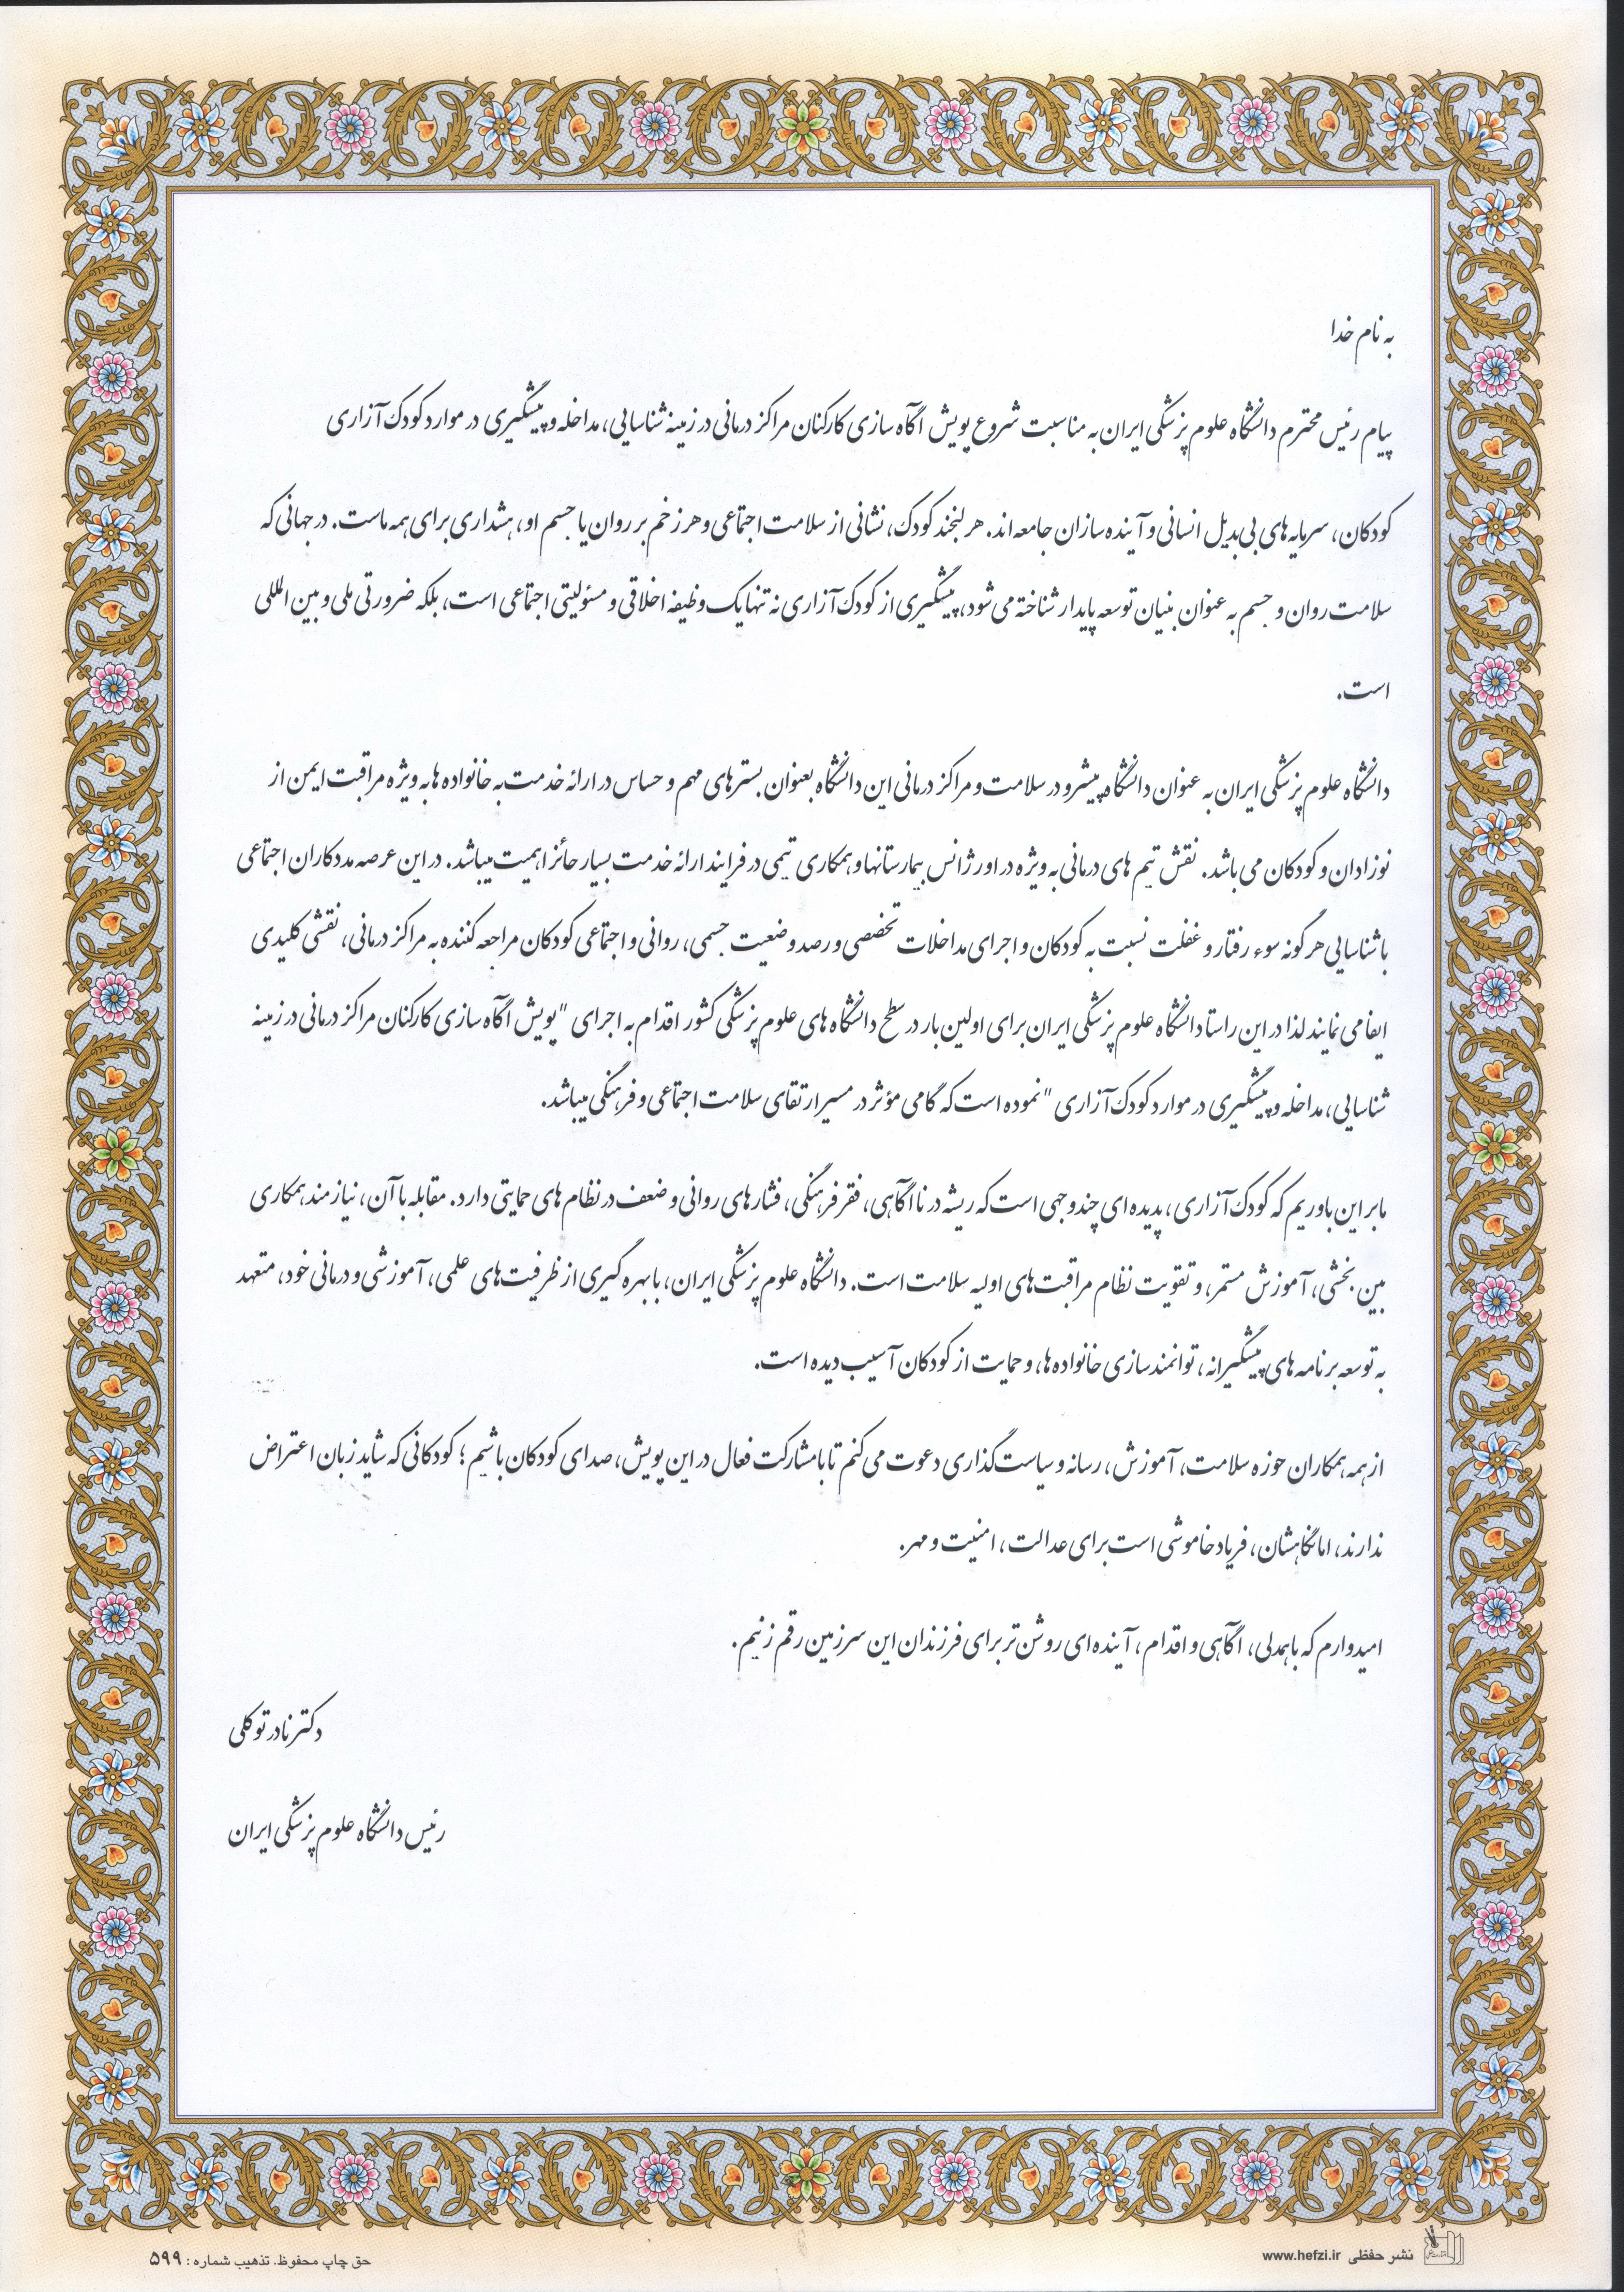 به نام خدا
پیام رئیس محترم دانشگاه علوم پزشکی ایران به مناسبت شروع پویش آگاه سازی کارکنان مراکز درمانی در زمینه شناسایی، مداخله و پیشگیری در موارد کودک آزاری
کودکان، سرمایه های بی بدیل انسانی و آینده سازان جامعه اند. هر لبخند کودک، نشانی از سلامت اجتماعی و هر زخم بر روان یا جسم او، هشداری برای همه ماست. در جهانی که
سلامت روان و جسم به عنوان بنیان توسعه پایدار شناخته می شود، پیشگیری از کودک آزاری نه تنها یک وظیفه اخلاقی و مسئولیتی اجتماعی است، بلکه ضرورتی ملی و بین المللی
است.
دانشگاه علوم پزشکی ایران به عنوان دانشگاه پیشرو در سلامت و مراکز درمانی این دانشگاه بعنوان بسترهای مهم و حساس در ارائه خدمت به خانواده ها به ویژه مراقبت ایمن از
نوزادان و کودکان می باشد. نقش تیم های درمانی به ویژه در اورژانس بیمارستانها و همکاری تیمی در فرایند ارائه خدمت بسیار حائز اهمیت میباشد. در این عرصه مددکاران اجتماعی
با شناسایی هر گونه سوء رفتار و غفلت نسبت به کودکان و اجرای مداخلات تخصصی و رصد وضعیت جسمی، روانی و اجتماعی کودکان مراجعه کننده به مراکز درمانی، نقشی کلیدی
ایفا می نمایند لذا در این راستا دانشگاه علوم پزشکی ایران برای اولین بار در سطح دانشگاه های علوم پزشکی کشور اقدام به اجرای "پویش آگاه سازی کارکنان مراکز درمانی در زمینه
شناسایی، مداخله و پیشگیری در موارد کودک آزاری" نموده است که گامی مؤثر در مسیر ارتقای سلامت اجتماعی و فرهنگی میباشد.
ما بر این باوریم که کودک آزاری، پدیده ای چندوجهی است که ریشه در ناآگاهی، فقر فرهنگی، فشارهای روانی و ضعف در نظام های حمایتی دارد. مقابله با آن، نیازمند همکاری
بین بخشی، آموزش مستمر، و تقویت نظام مراقبت های اولیه سلامت است. دانشگاه علوم پزشکی ایران، با بهره گیری از ظرفیت های علمی، آموزشی و درمانی خود، متعهد
به توسعه برنامه های پیشگیرانه، توانمندسازی خانواده ها، و حمایت از کودکان آسیب دیده است.
از همه همکاران حوزه سلامت، آموزش، رسانه و سیاست گذاری دعوت می کنم تا با مشارکت فعال در این پویش، صدای کودکان باشیم؛ کودکانی که شاید زبان اعتراض
ندارند، اما نگاهشان، فریاد خاموشی است برای عدالت، امنیت و مهر.
امیدوارم که با همدلی، آگاهی و اقدام، آینده ای روشن تر برای فرزندان این سرزمین رقم زنیم.
دکتر نادر توکلی
رئیس دانشگاه علوم پزشکی ایران
نشر حفظی www.hefzi.ir
حق چاپ محفوظ. تذهیب شماره: ۵۹۹